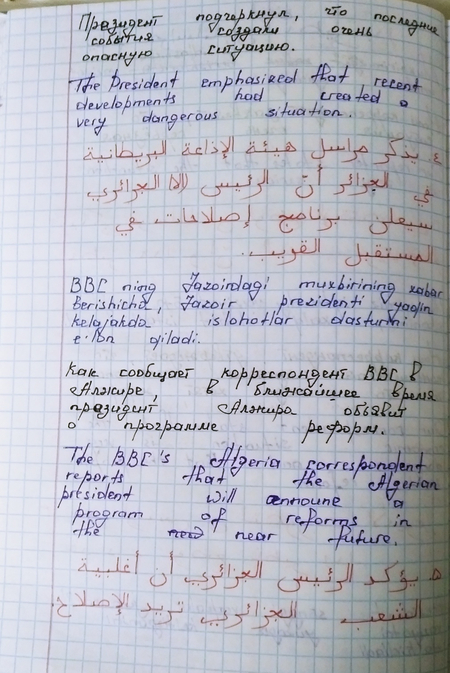 Президент подчеркнул, что последние
события создали очень
опасную ситуацию.
The President emphasized that recent
developments had created a
very dangerous situation.
٤ يذكر مراسل هيئة الإذاعة البريطانية
في الجزائر أنّ الرئيس (الا) الجزائري
سيعلن برنامج إصلاحات في
المستقبل القريب.
BBC ning Jazoirdagi muxbirining xabar
Berishicha, Jazoir prezidenti yaqin
kelajakda islohotlar dasturini
e'lon qiladi.
Как сообщает корреспондент BBC в
Алжире, в ближайшее время
президент Алжира объявит
о программе реформ.
The BBC's Algeria correspondent
reports that the Algerian
president will announe a
program of reforms in
the near future.
٥ يؤكد الرئيس الجزائري أن أغلبية
الشعب الجزائري تريد الإصلاح.